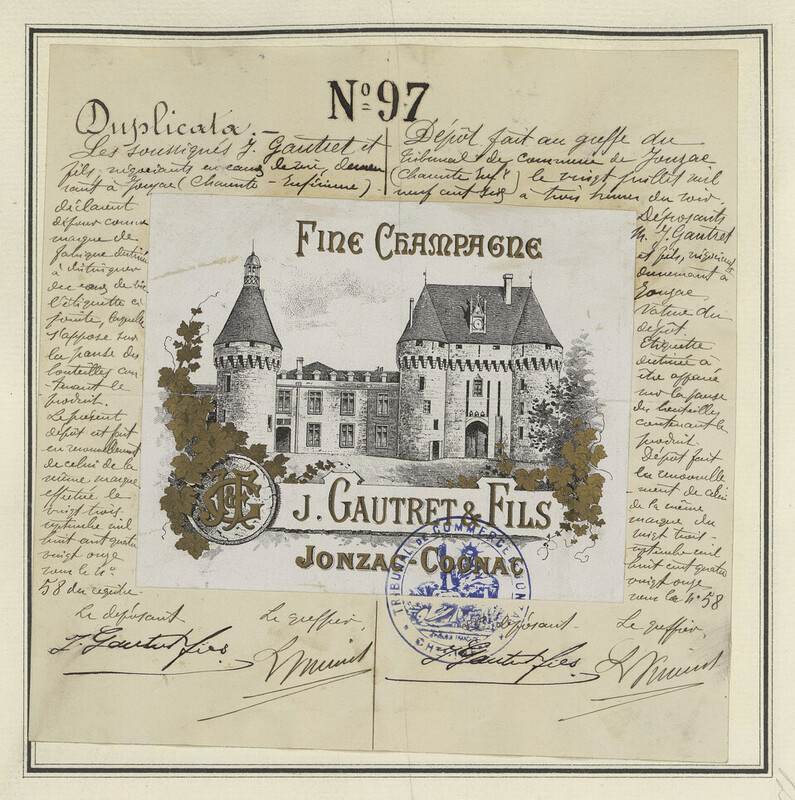 Nº 97
Duplicata.-
Les soussignés J. Gautret et
fils, négociants en eaux de vie, demeu
rant à Jonzac (Charente-Inférieure)
déclarent
déposer comme
marque de
fabrique destinée
à distinguer
des eaux de vie
l'étiquette ci
jointe, laquelle
s'appose sur
la panse des
bouteilles con
tenant le
produit.
Le présent
dépôt est fait
en renouvellement
de celui de la
même marque
effectué le
vingt trois
septembre mil
huit cent quatre
vingt onze
sous le nº
58 du registre.
Le déposant
J. Gautret & fils
Le greffier,
Dépôt fait au greffe du
Tribunal de commerce de Jonzac
(Charente Infre) le vingt juillet mil
neuf cent six à trois heures du soir
Déposants
M. J. Gautret
et fils, négociants
demeurant à
Jonzac
Nature du
dépôt
Etiquette
destinée à
être apposée
sur la panse
des bouteilles
contenant le
produit
Dépôt fait
en renouvelle
ment de celui
de la même
marque du
vingt trois
septembre mil
huit cent quatre
vingt onze
sous le nº 58
déposant
J. Gautret & fils
Le greffier,
FINE CHAMPAGNE
J&G
J. GAUTRET & FILS
JONZAC-COGNAC
TRIBUNAL DE COMMERCE JONZAC